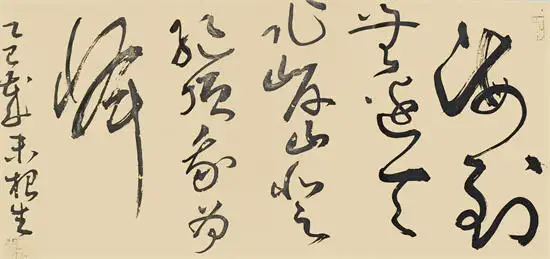 海到
無邊天
作岸山登
絕頂我為
峰
乙巳歲末根生